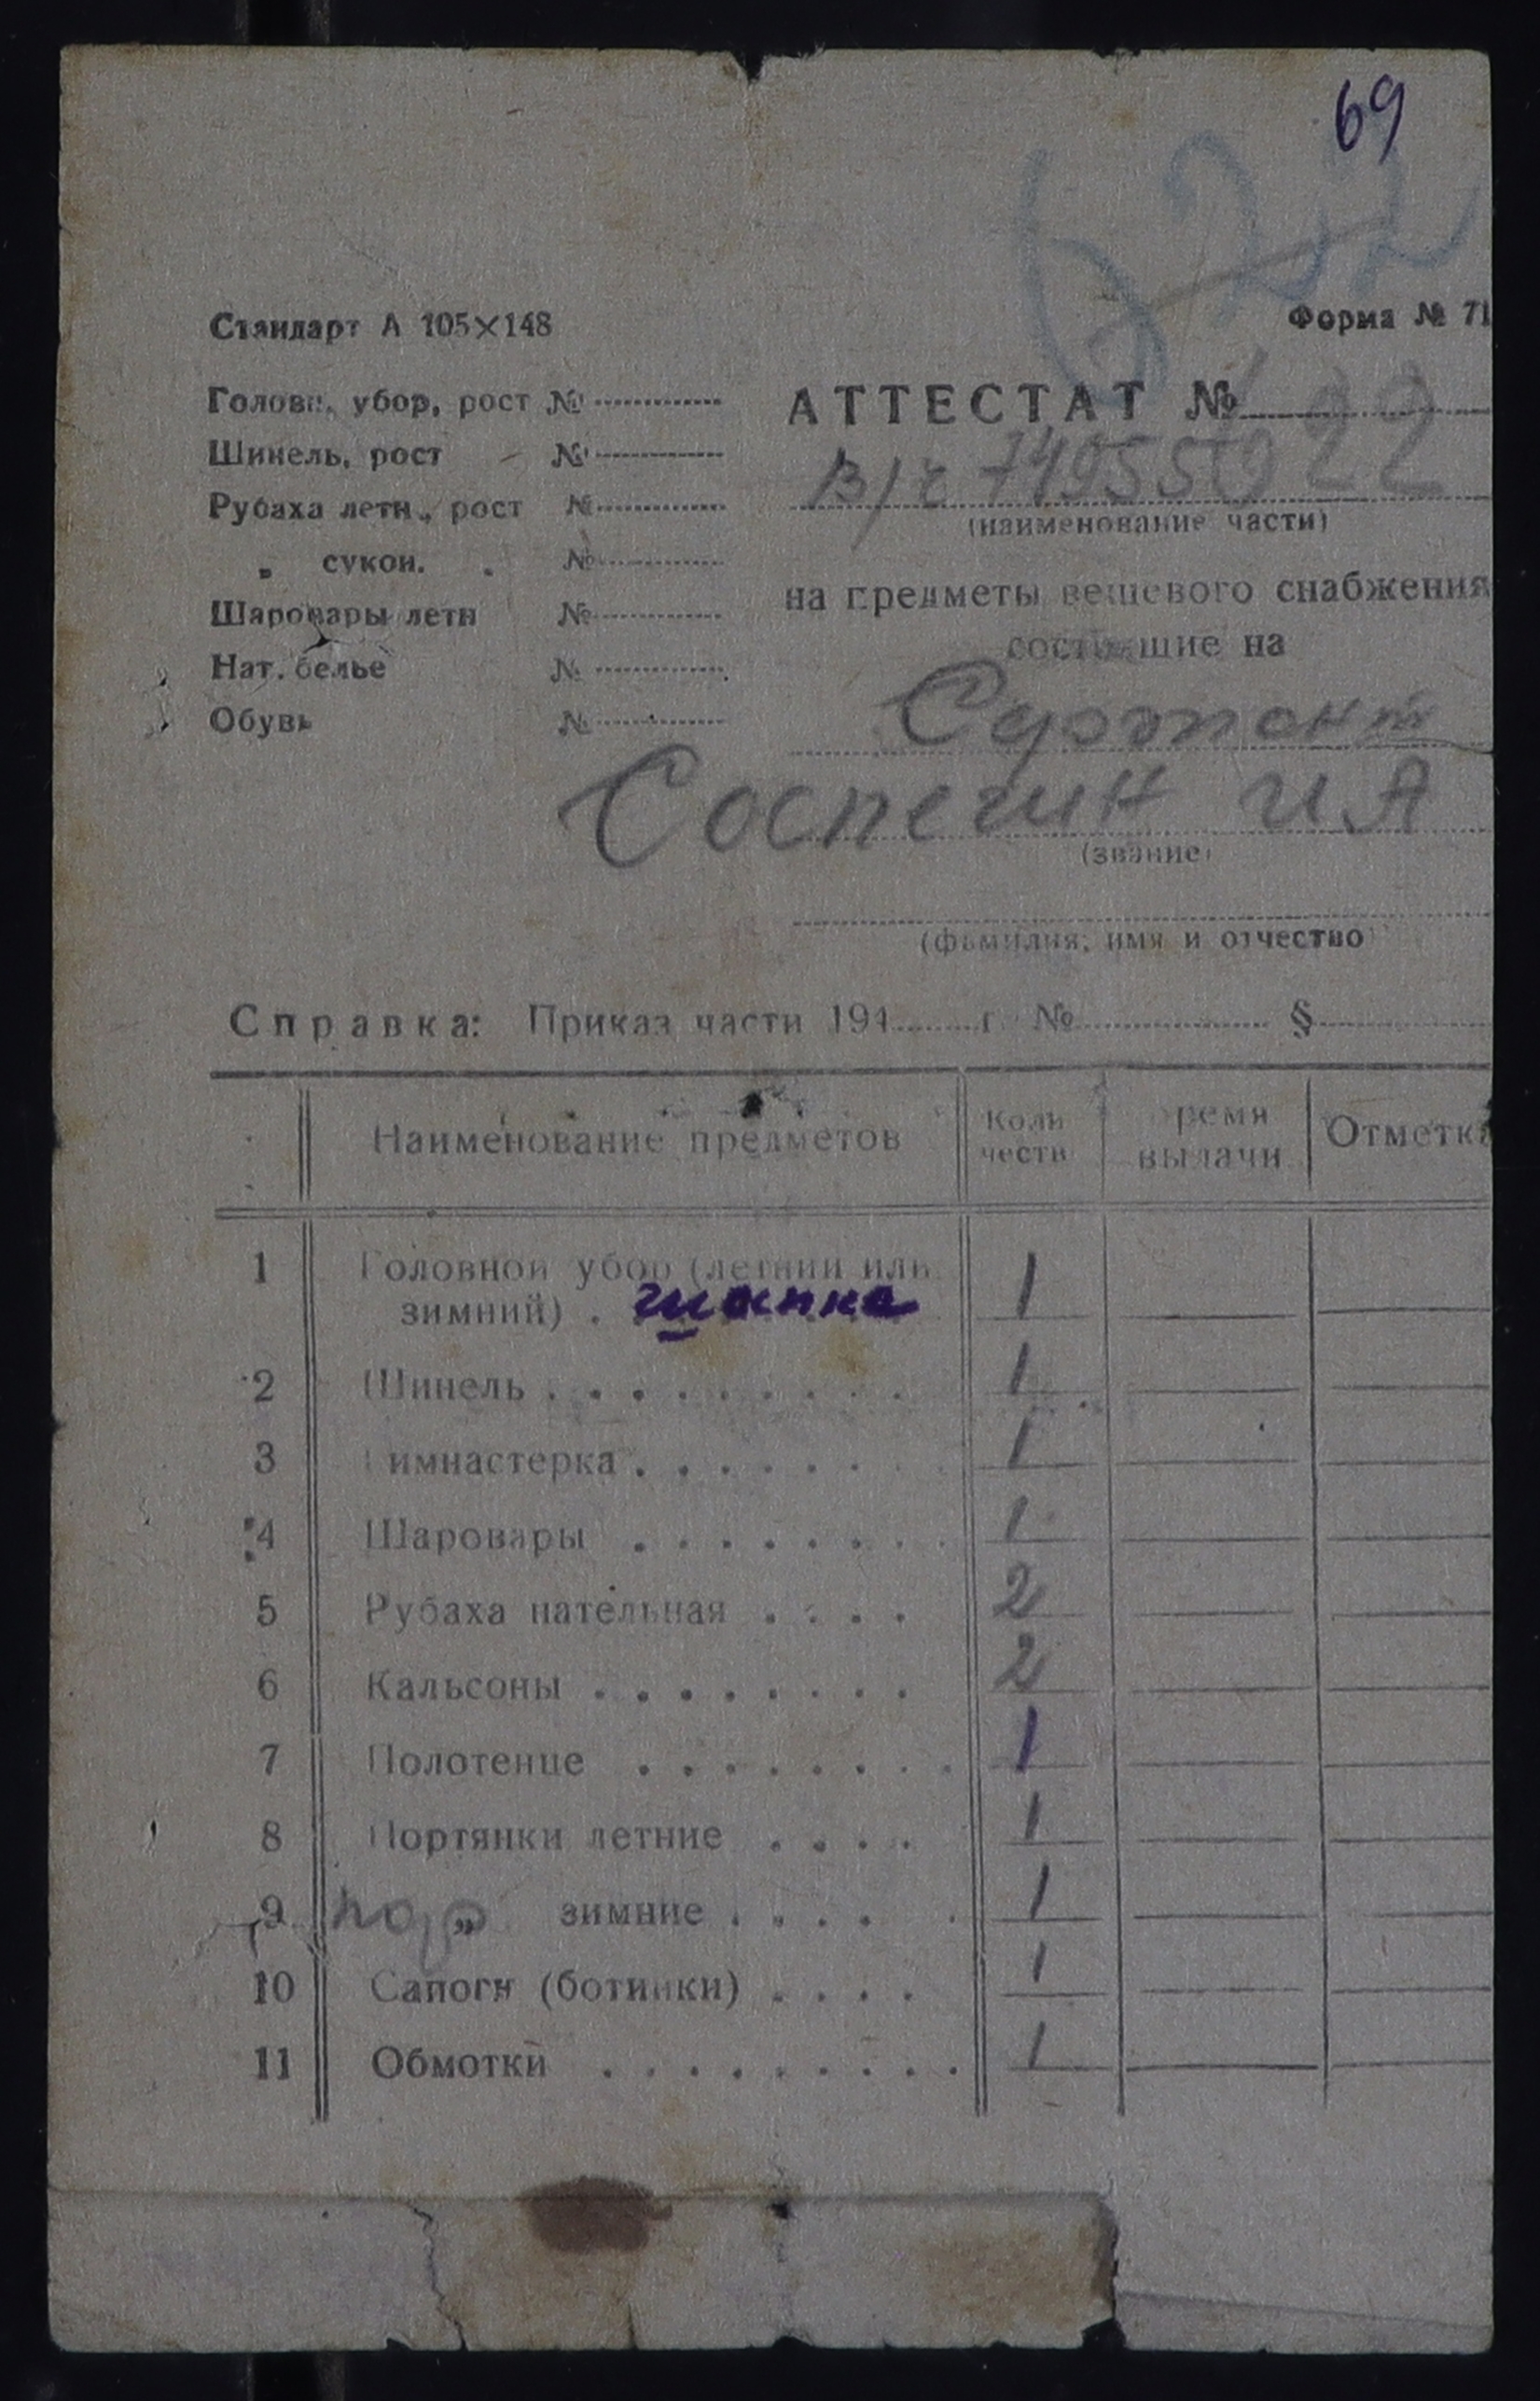 69
Стандарт А 105×148
Форма № 71
Головн. убор, рост №
Шинель, рост №
Рубаха летн., рост №
„ сукон. „ №
Шаровары летн №
Нат. белье №
Обувь №
АТТЕСТАТ №
В/ч
(наименование части)
на предметы вещевого снабжения
состоящие на
Сержант
Соспегин И А
(звание)
(фамилия, имя и отчество)
Справка: Приказ части 194 г. № §
Наименование предметов Коли честв Время выдачи Отметка
1 Головной убор (летний или 1
зимний) . шапка
2 Шинель . . . . . . . . . 1
3 Гимнастерка . . . . . . . . 1
4 Шаровары . . . . . . . . 1
5 Рубаха нательная . . . . 2
6 Кальсоны . . . . . . . . 2
7 Полотенце . . . . . . . . 1
8 Портянки летние . . . . 1
9 пар „ зимние . . . . . 1
10 Сапоги (ботинки) . . . . 1
11 Обмотки . . . . . . . . . 1